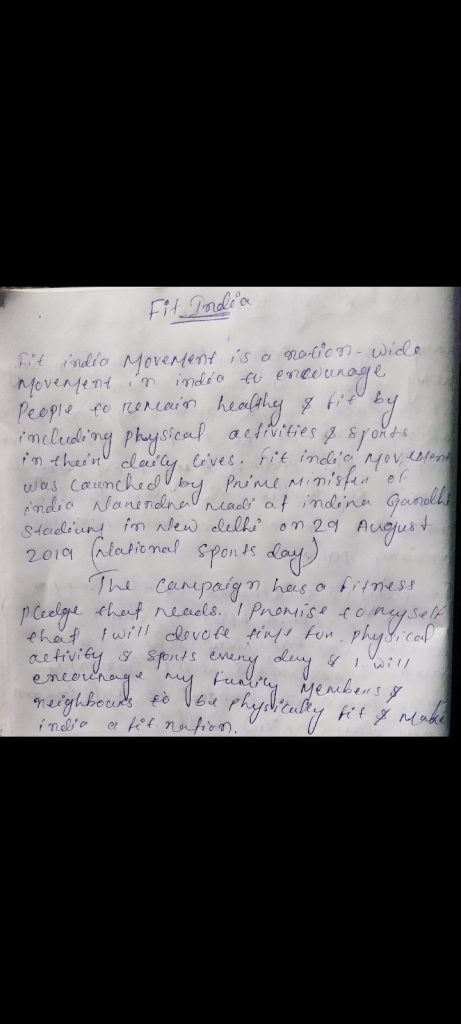 Fit India
Fit india Movement is a nation-wide
Movement in india to encourage
People to remain healthy & fit by
including physical activities & sports
in their daily lives. Fit india Movement
was launched by Prime Minister of
india Narendra Madi at indira Gandhi
Stadium in New delhi on 29 August
2019 (National sports day.)
The campaign has a fitness
pledge that reads. I Promise to myself
that I will devote time for physical
activity & sports every day & I will
encourage my family Members &
neighbours to be physically fit & make
india a fit nation.